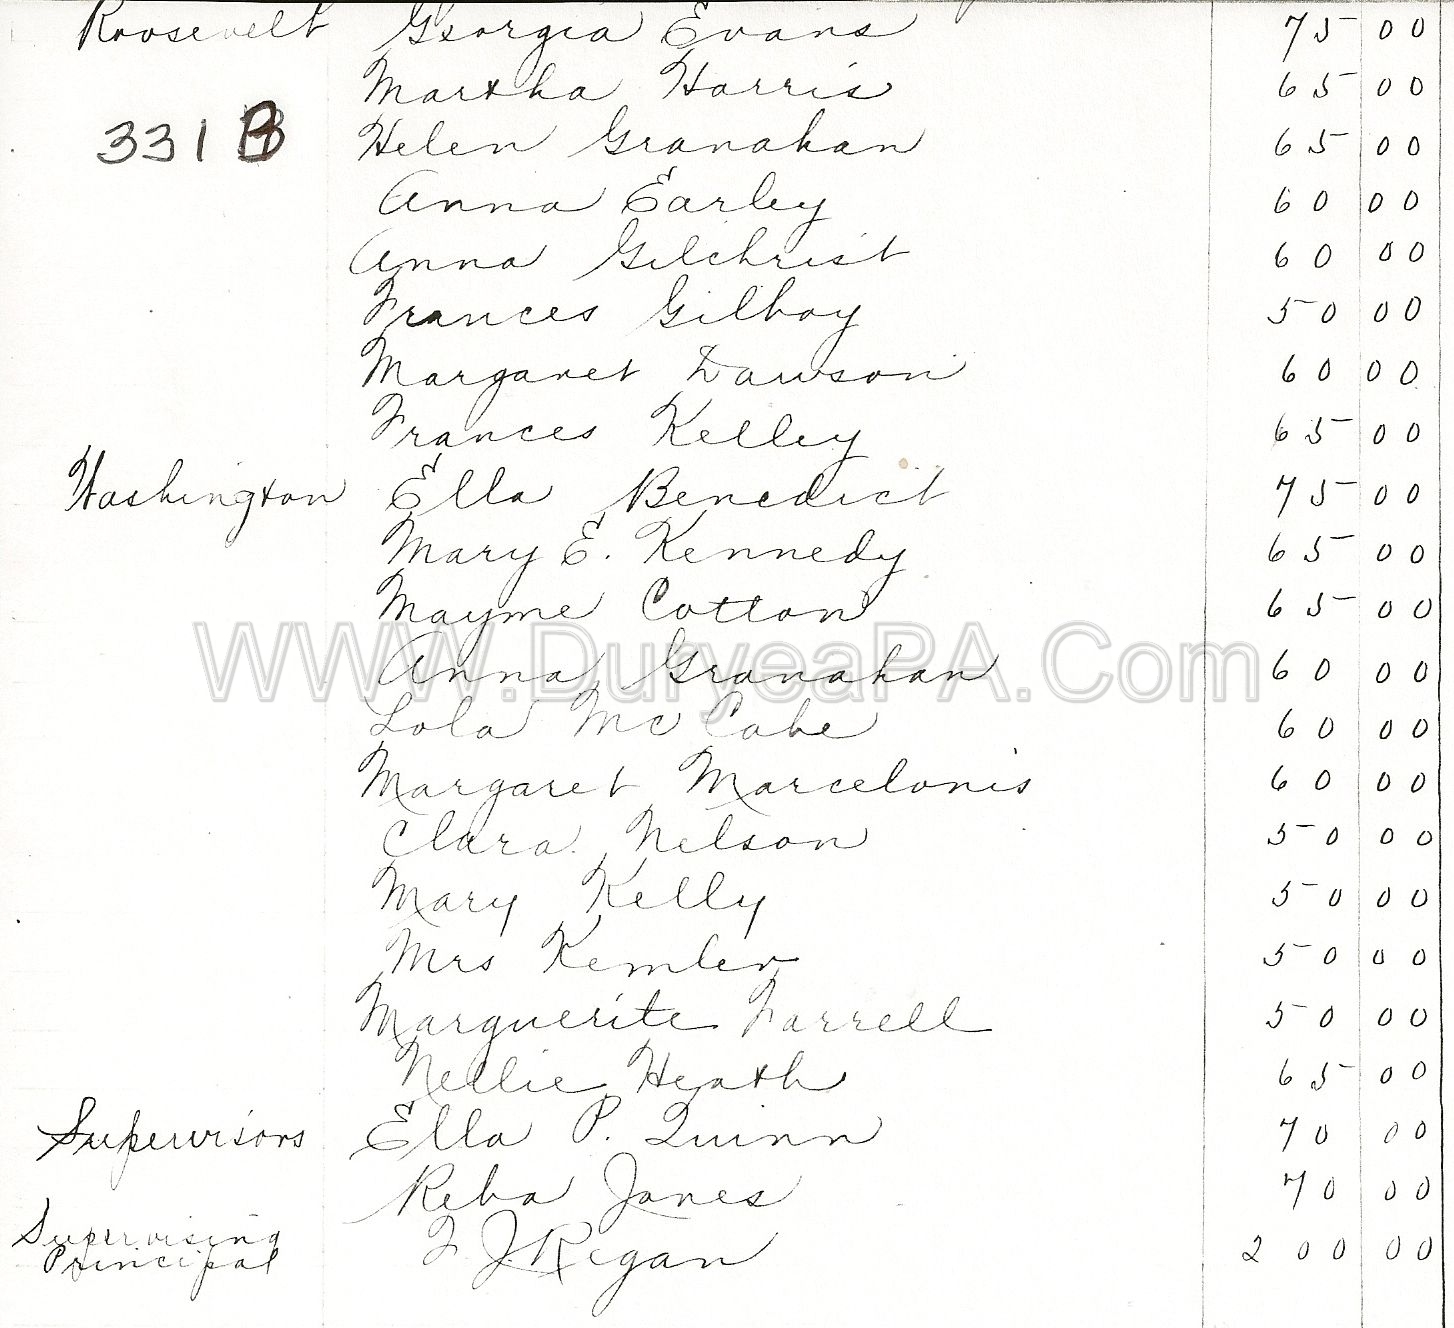 Roosevelt Georgia Evans 75 00
Martha Harris 65 00
331 B Helen Granahan 65 00
Anna Earley 60 00
Anna Gilchrist 60 00
Frances Gilboy 50 00
Margaret Dawson 60 00
Frances Kelley 65 00
Washington Ella Benedict 75 00
Mary E. Kennedy 65 00
Mayme Cotton 65 00
WWW.DuryeaPA.Com
Anna Granahan 60 00
Lola McCabe 60 00
Margaret Marcelonis 60 00
Clara Nelson 50 00
Mary Kelly 50 00
Mrs Kemler 50 00
Marguerite Farrell 50 00
Nellie Heath 65 00
Supervisors Ella P. Quinn 70 00
Reba Jones 70 00
Supervising
Principal F J Regan 200 00